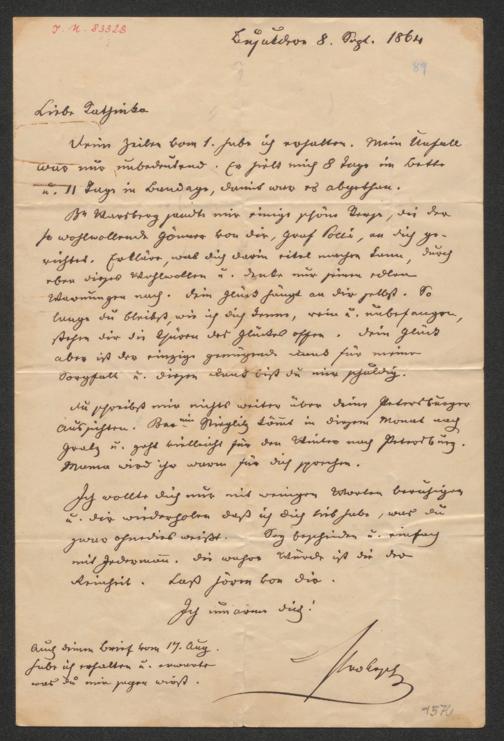 J. N. 83328
Bujukdere 8. Sept. 1864
89
Liebe Kathinka
Deine Zeilen vom 1. habe ich erhalten. Mein Unfall
war nur unbedeutend. Er hielt mich 8 Tage im Bette
u. 11 Tage in Bandage, damit war es abgethan.
Bn Warsberg sandte mir einige schöne Verse, die der
so wohlwollende Gönner von dir, Graf, an dich ge-
richtet. Erkläre, was dich darin eitel machen kann, durch
eben dieses Wohlwollen u. denke nur seinen edlen
Warnungen nach. Dein Glück hängt an dir selbst. So
lange du bleibst, wie ich dich kenne, rein u. unbefangen,
stehen dir die Thüren des Glückes offen. Dein Glück
aber ist der einzige genügende Dank für meine
Sorgfalt u. diesen Dank bist du mir schuldig.
Du schreibst mir nichts weiter über deine Petersburger
Aussichten. Baronin Stieglitz kömmt in diesem Monat nach
Gratz u. geht vielleicht für den Winter nach Petersburg.
Mama wird ihr warm für dich sprechen.
Ich wollte dich nur mit wenigen Worten beruhigen
u. dir wiederholen daß ich dich lieb habe, was du
zwar ohnedies weißt. Sey bescheiden u. einfach
mit Jedermann. Die wahre Würde ist die der
Reinheit. Laß hören von dir.
Ich umarme dich!
Auch deinen Brief vom 17. Aug.
habe ich erhalten u. erwarte
was du mir sagen wirst.
Prokesch